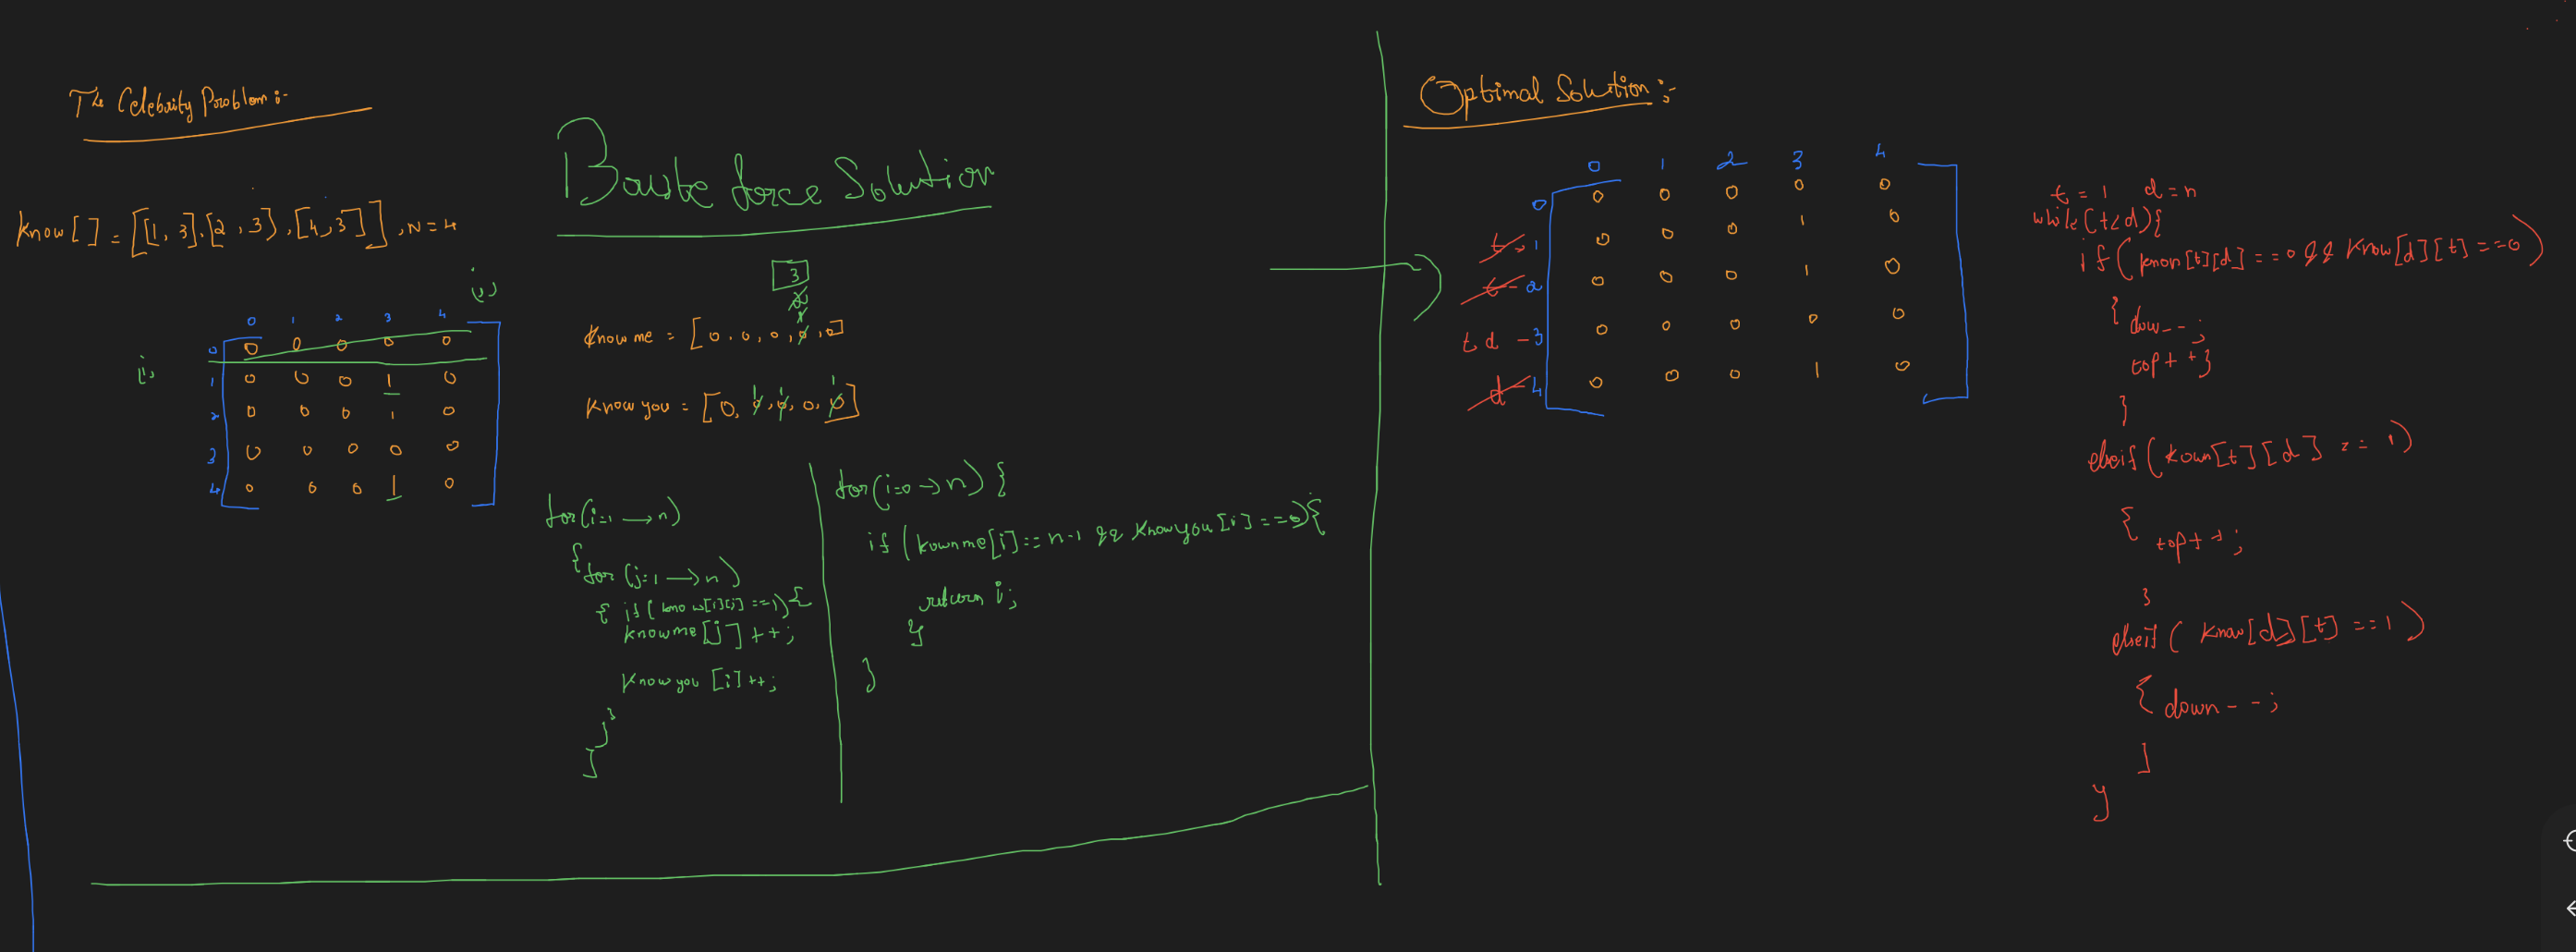 The Celebrity Problem :-
Know[ ] = [[1, 3], [2, 3], [4, 3]], N = 4
(j)
0 1 2 3 4
0 0 0 0 0 0
i,
1 0 0 0 1 0
2 0 0 0 1 0
3 0 0 0 0 0
4 0 0 0 1 0
Boute force Solution
3
2
1
Know me = [0, 0, 0, 0, 0]
1 1 1
Know you = [0, 0, 0, 0, 0]
for(i=1 → n)
{
for (j=1 → n)
{ if (know[i][j] ==1) {
knowme [j] ++;
know you [i] ++;
}
}
]
for(i=0 → n) {
if (kownme[i] == n-1 && knowyou [i] ==0) {
return i;
}
}
Optimal Solution :-
0 1 2 3 4
0 0 0 0 0 0
t - 1 0 0 0 1 0
t - 2 0 0 0 1 0
t d - 3 0 0 0 0 0
d - 4 0 0 0 1 0
t = 1 d = n
while(t<d){
if (know[t][d] == 0 && know[d][t] ==0)
{ dow--;
top++}
}
elseif (kown[t][d] == 1)
{ top++;
}
elseif ( know[d][t] ==1)
{ down--;
]
}